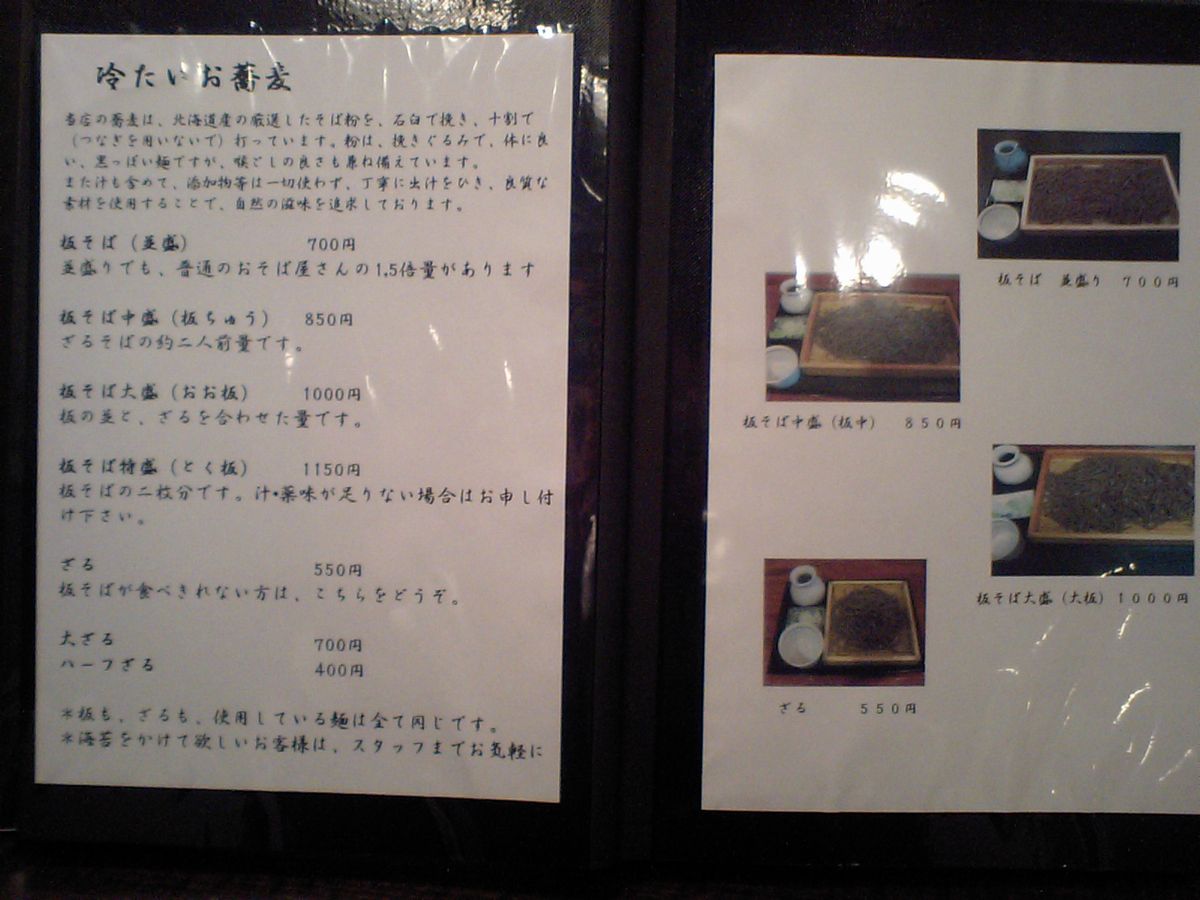 冷たいお蕎麦
当店の蕎麦は、北海道産の厳選したそば粉を、石臼で挽き、十割で
（つなぎを用いないで）打っています。粉は、挽きぐるみで、体に良
い、黒っぽい麺ですが、喉ごしの良さも兼ね備えています。
また汁も含めて、添加物等は一切使わず、丁寧に出汁をひき、良質な
素材を使用することで、自然の滋味を追求しております。
板そば（並盛） 700円
並盛りでも、普通のおそば屋さんの1.5倍量があります
板そば中盛（板ちゅう） 850円
ざるそばの約二人前量です。
板そば大盛（おお板） 1000円
板の並と、ざるを合わせた量です。
板そば特盛（とく板） 1150円
板そばの二枚分です。汁・薬味が足りない場合はお申し付
け下さい。
ざる 550円
板そばが食べきれない方は、こちらをどうぞ。
大ざる 700円
ハーフざる 400円
＊板も、ざるも、使用している麺は全て同じです。
＊海苔をかけて欲しいお客様は、スタッフまでお気軽に
板そば 並盛り ７００円
板そば中盛（板中） ８５０円
板そば大盛（大板）１０００円
ざる ５５０円